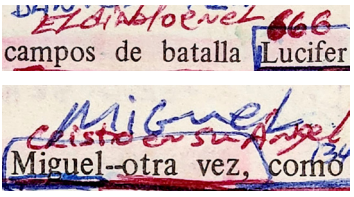 EL diablo en el 666
campos de batalla Lucifer
Miguel
Cristo en su Angel
Miguel--otra vez, como
134